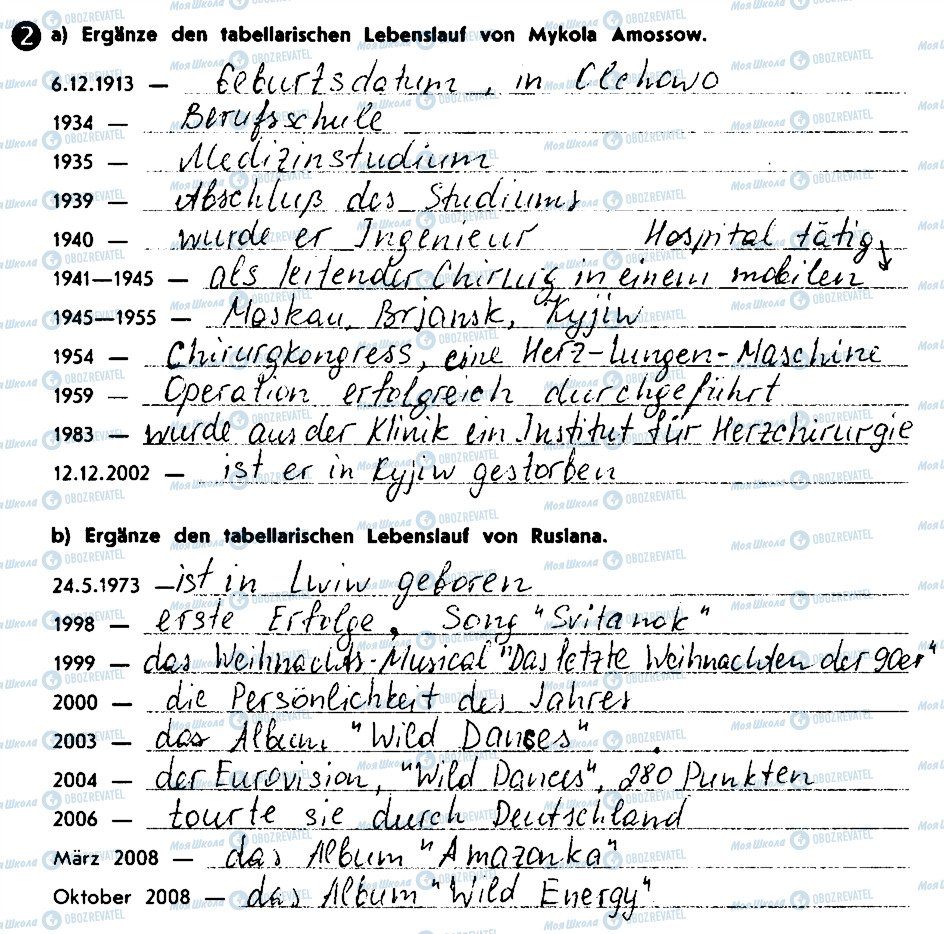 2 a) Ergänze den tabellarischen Lebenslauf von Mykola Amossow.
6.12.1913 — Geburtsdatum, in Olehowo
1934 — Berufsschule
1935 — Medizinstudium
1939 — Abschluß des Studiums
1940 — wurde er Ingenieur Hospital tätig
1941—1945 — als leitender Chirurg in einem mobilen
1945—1955 — Moskau, Brjansk, Kyjiw
1954 — Chirurgkongress, eine Herz-Lungen-Maschine
1959 — Operation erfolgreich durchgeführt
1983 — wurde aus der Klinik ein Institut für Herzchirurgie
12.12.2002 — ist er in Kyjiw gestorben
b) Ergänze den tabellarischen Lebenslauf von Ruslana.
24.5.1973 — ist in Lwiw geboren
1998 — erste Erfolge, Song "Svitanok"
1999 — das Weihnachts-Musical "Das letzte Weihnachten der 90er"
2000 — die Persönlichkeit des Jahres
2003 — das Album "Wild Dances"
2004 — der Eurovision, "Wild Dances", 280 Punkten
2006 — tourte sie durch Deutschland
März 2008 — das Album "Amazonka"
Oktober 2008 — das Album "Wild Energy"